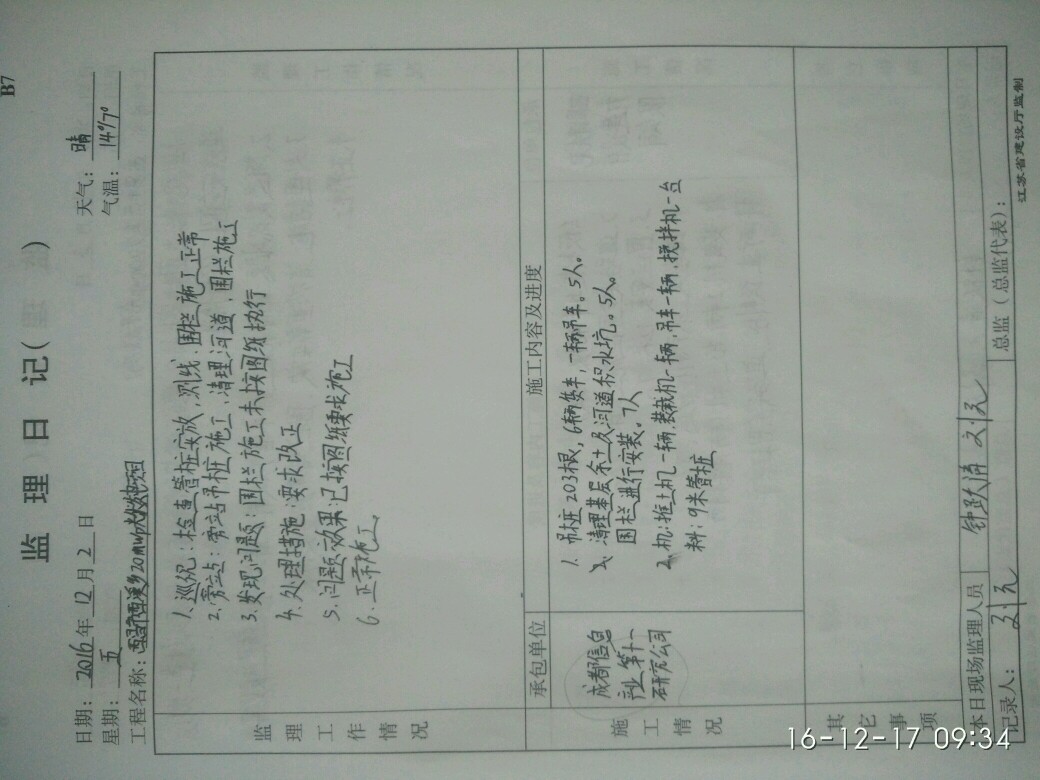 B7
监 理 日 记（
日期：2016年12月2日 天气：晴
星期：五 气温：14°/7°
工程名称：20mwp
监理工作情况
1、巡视：检查管桩安放，测线，围栏施工正常
2、旁站：旁站吊桩施工，清理河道，围栏施工
3、发现问题：围栏施工未按图纸执行
4、处理措施：要求改正
5、问题效果：已按图纸要求施工
6、正常施工。
施工情况
承包单位
施工内容及进度
成都信息
产业第十一
研究公司
1、吊桩203根，6辆货车，一辆吊车。5人。
清理基层余土及河道积水坑。5人。
围栏进行安装。7人
2、机：推土机一辆，装载机一辆，吊车一辆，搅拌机一台
料：9米管桩
其它事项
本日现场监理人员
记录人： 总监（总监代表）：
江苏省建设厅监制
16-12-17 09:34